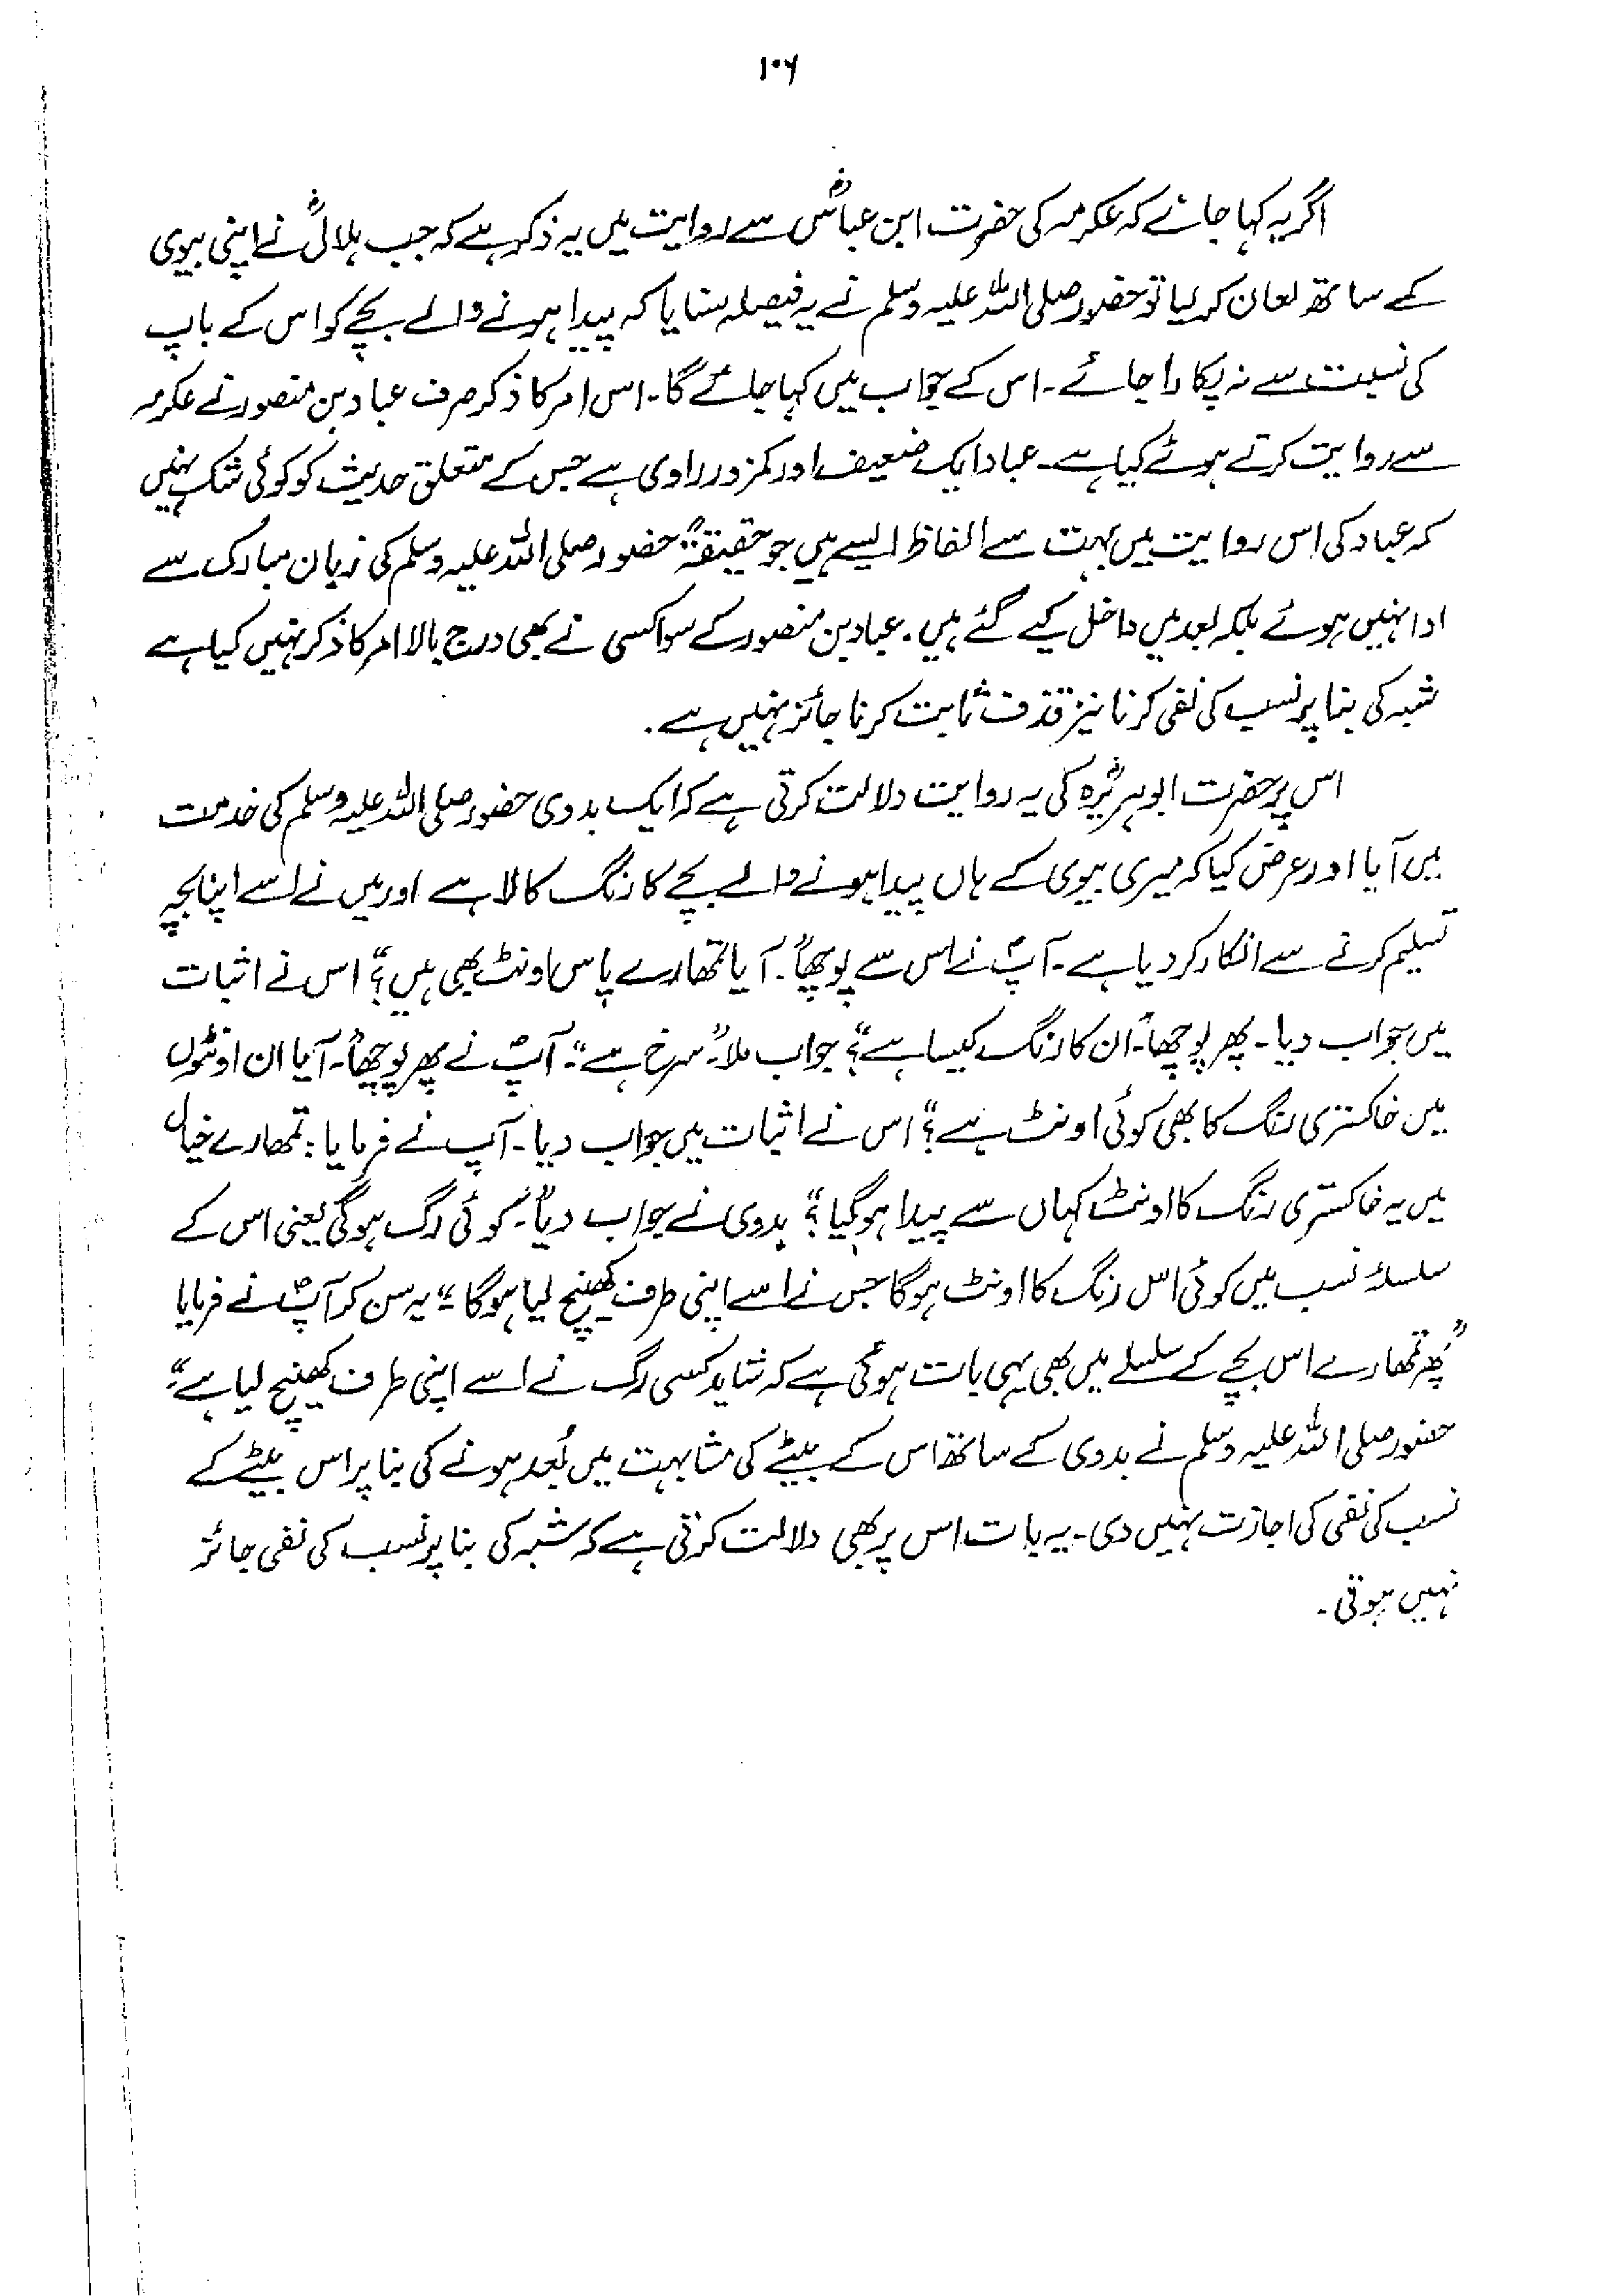 ۱۰۶
اگر یہ کہا جائے کہ عکرمہ کی حضرت ابن عباسؓ سے روایت میں یہ ذکر ہے کہ جب ہلالؓ نے اپنی بیوی
کے ساتھ لعان کر لیا تو حضور صلی اللہ علیہ وسلم نے یہ فیصلہ سنایا کہ پیدا ہونے والے بچے کو اس کے باپ
کی نسبت سے نہ پکارا جائے۔ اس کے جواب میں کہا جائے گا۔ اس امر کا ذکر صرف عباد بن منصور نے عکرمہ
سے روایت کرتے ہوئے کیا ہے۔ عباد ایک ضعیف اور کمزور راوی ہے جس کے متعلق حدیث کو کوئی شک نہیں
کہ عباد کی اس روایت میں بہت سے الفاظ ایسے ہیں جو حقیقۃً حضور صلی اللہ علیہ وسلم کی زبان مبارک سے
ادا نہیں ہوئے بلکہ بعد میں داخل کیے گئے ہیں۔ عباد بن منصور کے سوا کسی نے بھی درج بالا امر کا ذکر نہیں کیا ہے
شبہ کی بنا پر نسب کی نفی کرنا نیز قذف ثابت کرنا جائز نہیں ہے۔
اس پر حضرت ابوہریرہؓ کی یہ روایت دلالت کرتی ہے کہ ایک بدوی حضور صلی اللہ علیہ وسلم کی خدمت
میں آیا اور عرض کیا کہ میری بیوی کے ہاں پیدا ہونے والے بچے کا رنگ کالا ہے اور میں نے اسے اپنا بچہ
تسلیم کرنے سے انکار کر دیا ہے۔ آپؐ نے اس سے پوچھا۔ "آیا تمھارے پاس اونٹ بھی ہیں؟" اس نے اثبات
میں جواب دیا۔ پھر پوچھا۔ "ان کا رنگ کیسا ہے؟" جواب ملا۔ "سرخ ہے"۔ آپؐ نے پھر پوچھا۔ "آیا ان اونٹوں
میں خاکستری رنگ کا بھی کوئی اونٹ ہے؟" اس نے اثبات میں جواب دیا۔ آپ نے فرمایا: تمھارے خیال
میں یہ خاکستری رنگ کا اونٹ کہاں سے پیدا ہو گیا؟" بدوی نے جواب دیا۔ "کوئی رگ ہو گی یعنی اس کے
سلسلۂ نسب میں کوئی اس رنگ کا اونٹ ہوگا جس نے اسے اپنی طرف کھینچ لیا ہوگا"۔ یہ سن کر آپؐ نے فرمایا
"پھر تمھارے اس بچے کے سلسلے میں بھی یہی بات ہوئی ہے کہ شاید کسی رگ نے اسے اپنی طرف کھینچ لیا ہے"۔
حضور صلی اللہ علیہ وسلم نے بدوی کے ساتھ اس کے بیٹے کی مشابہت میں بُعد ہونے کی بنا پر اس بیٹے کے
نسب کی نفی کی اجازت نہیں دی۔ یہ بات اس پر بھی دلالت کرتی ہے کہ شبہ کی بنا پر نسب کی نفی جائز
نہیں ہوتی۔